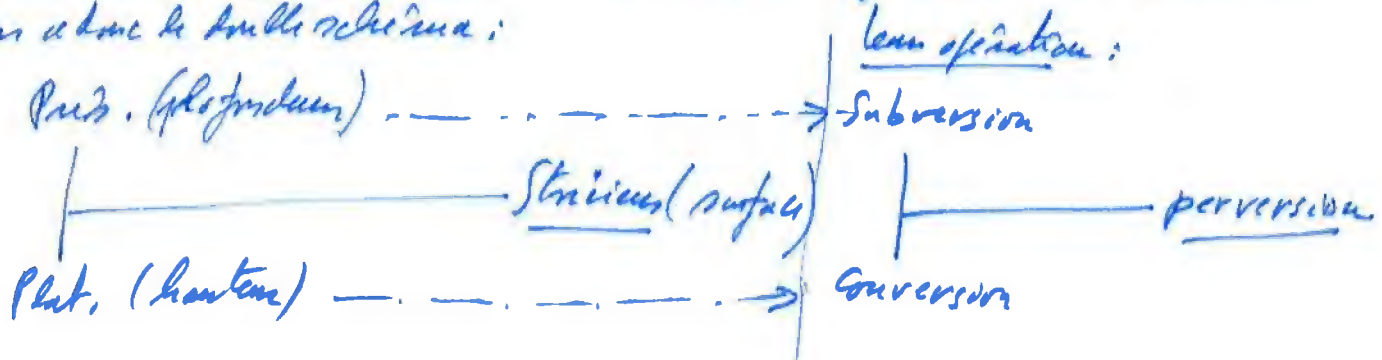 donc le double schéma :
leur opération :
Prés. (profondeur) Subversion
Stoïciens (surface) perversion
Plat. (hauteur) Conversion